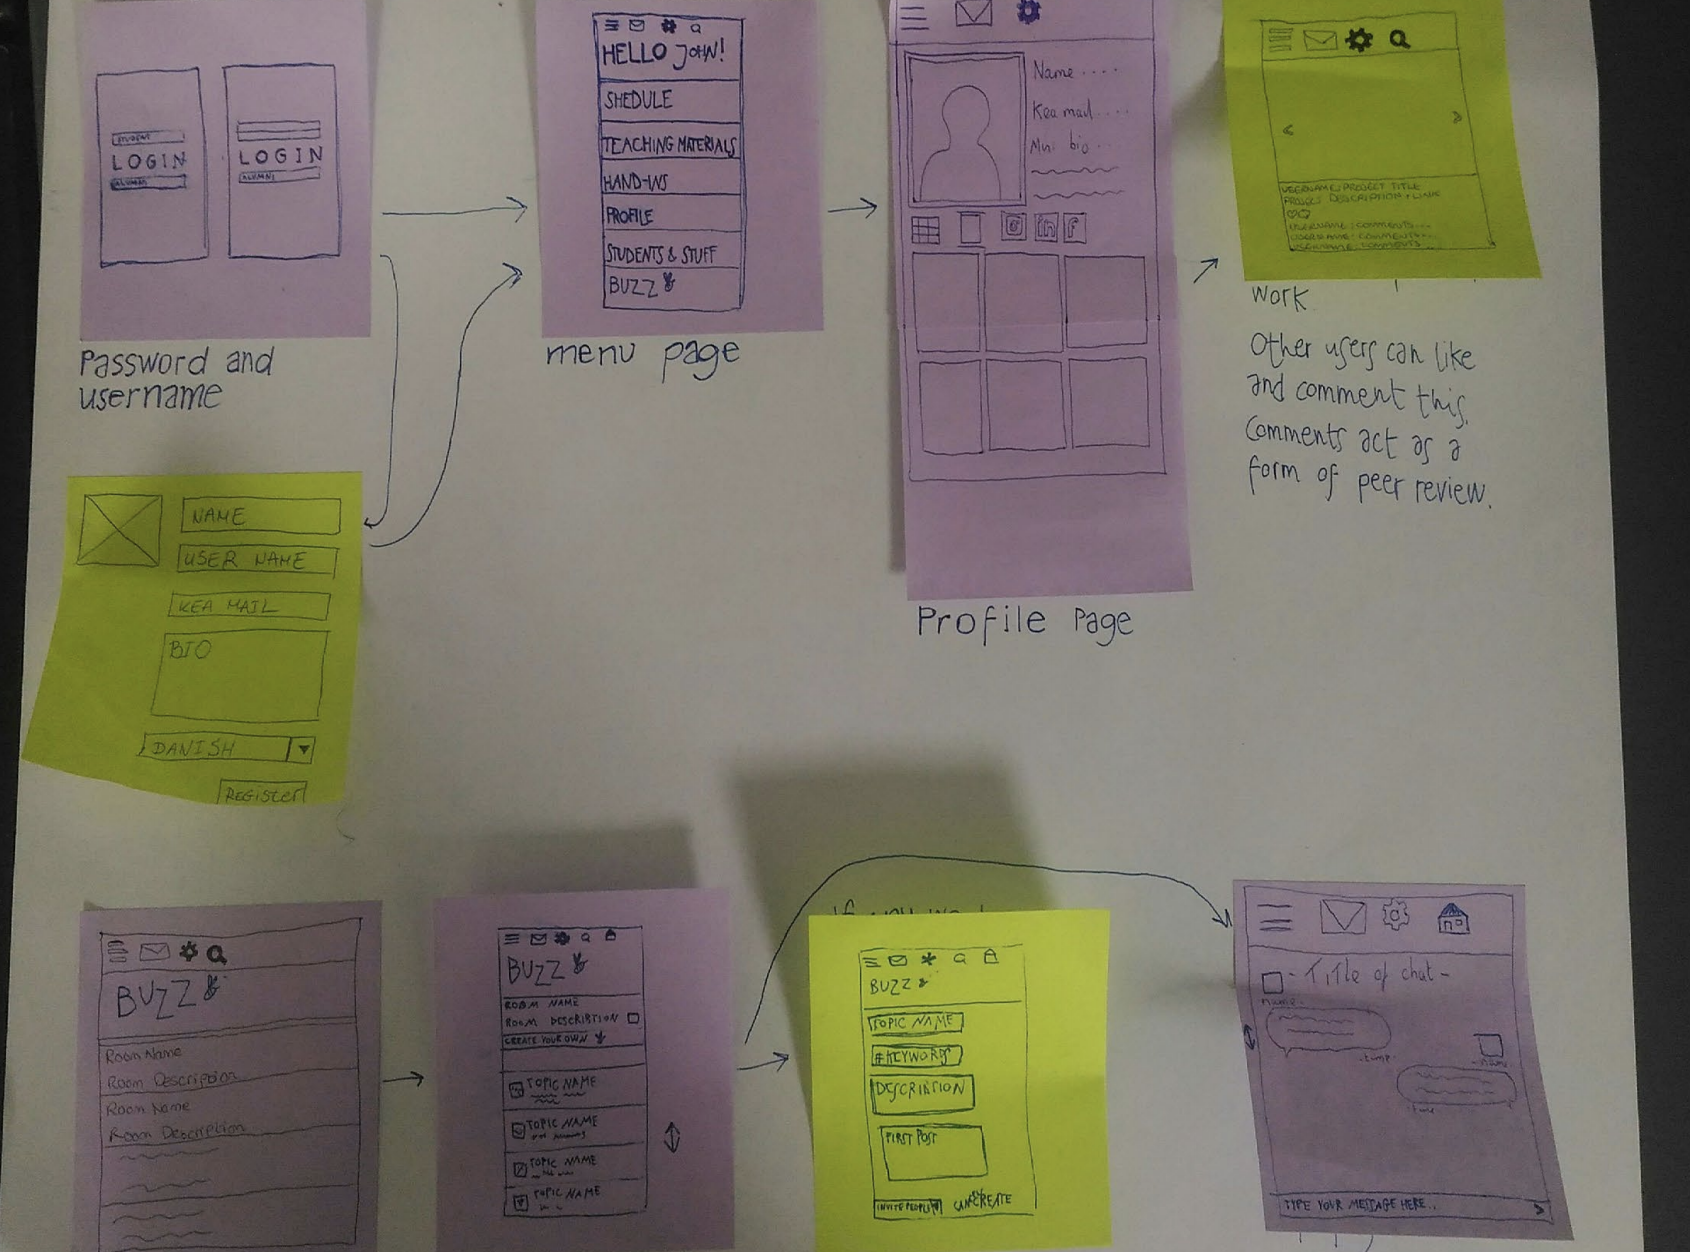 STUDENT
LOGIN
ALUMNI
LOGIN
ALUMNI
Password and
username
HELLO JOHN!
SHEDULE
TEACHING MATERIALS
HAND-INS
PROFILE
STUDENTS & STUFF
BUZZ
menu page
Name ....
Kea mail ....
Mini bio ..
in
f
Profile Page
USERNAME: PROJECT TITLE
PROJECT DESCRIPTION + LINK
USERNAME: COMMENTS...
USERNAME: COMMENTS...
USERNAME: COMMENTS...
work
Other users can like
and comment this.
Comments act as a
form of peer review.
NAME
USER NAME
KEA MAIL
BIO
DANISH
REGISTER
BUZZ
Room Name
Room Description
Room Name
Room Description
BUZZ
ROOM NAME
ROOM DESCRIPTION
CREATE YOUR OWN
TOPIC NAME
TOPIC NAME
TOPIC NAME
TOPIC NAME
If
BUZZ
TOPIC NAME
#KEYWORDS
DESCRIPTION
FIRST POST
INVITE PEOPLE
CREATE
- Title of chat -
name
time
name
time
TYPE YOUR MESSAGE HERE..